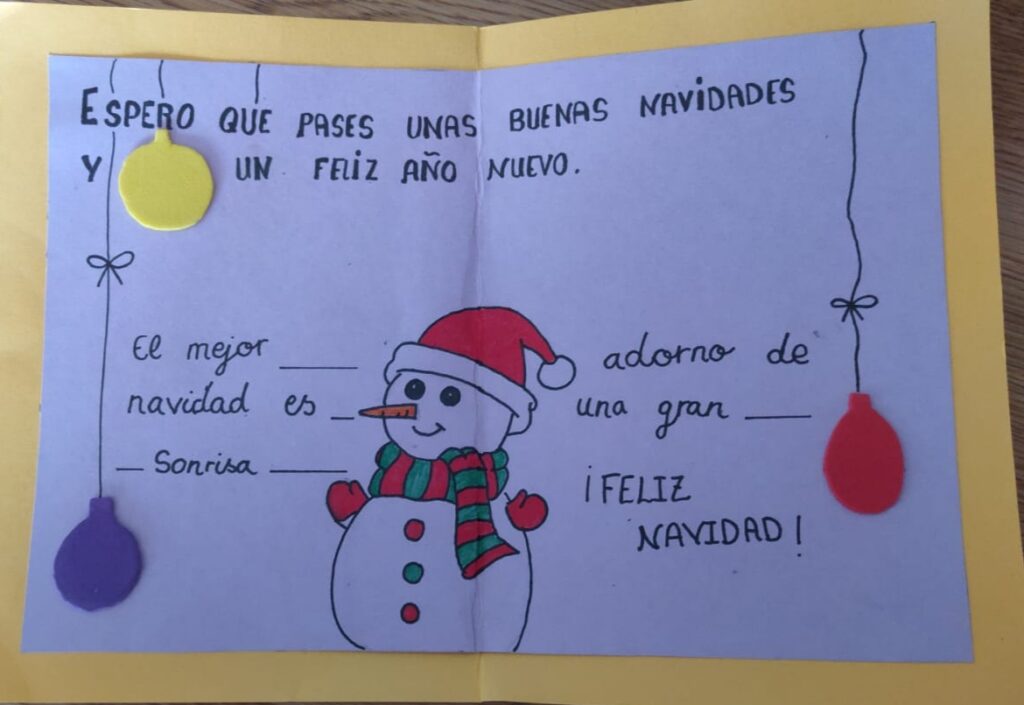 ESPERO QUE PASES UNAS BUENAS NAVIDADES
Y UN FELIZ AÑO NUEVO.
El mejor ____ adorno de
navidad es _ una gran ___
_ Sonrisa ____
¡FELIZ
NAVIDAD!